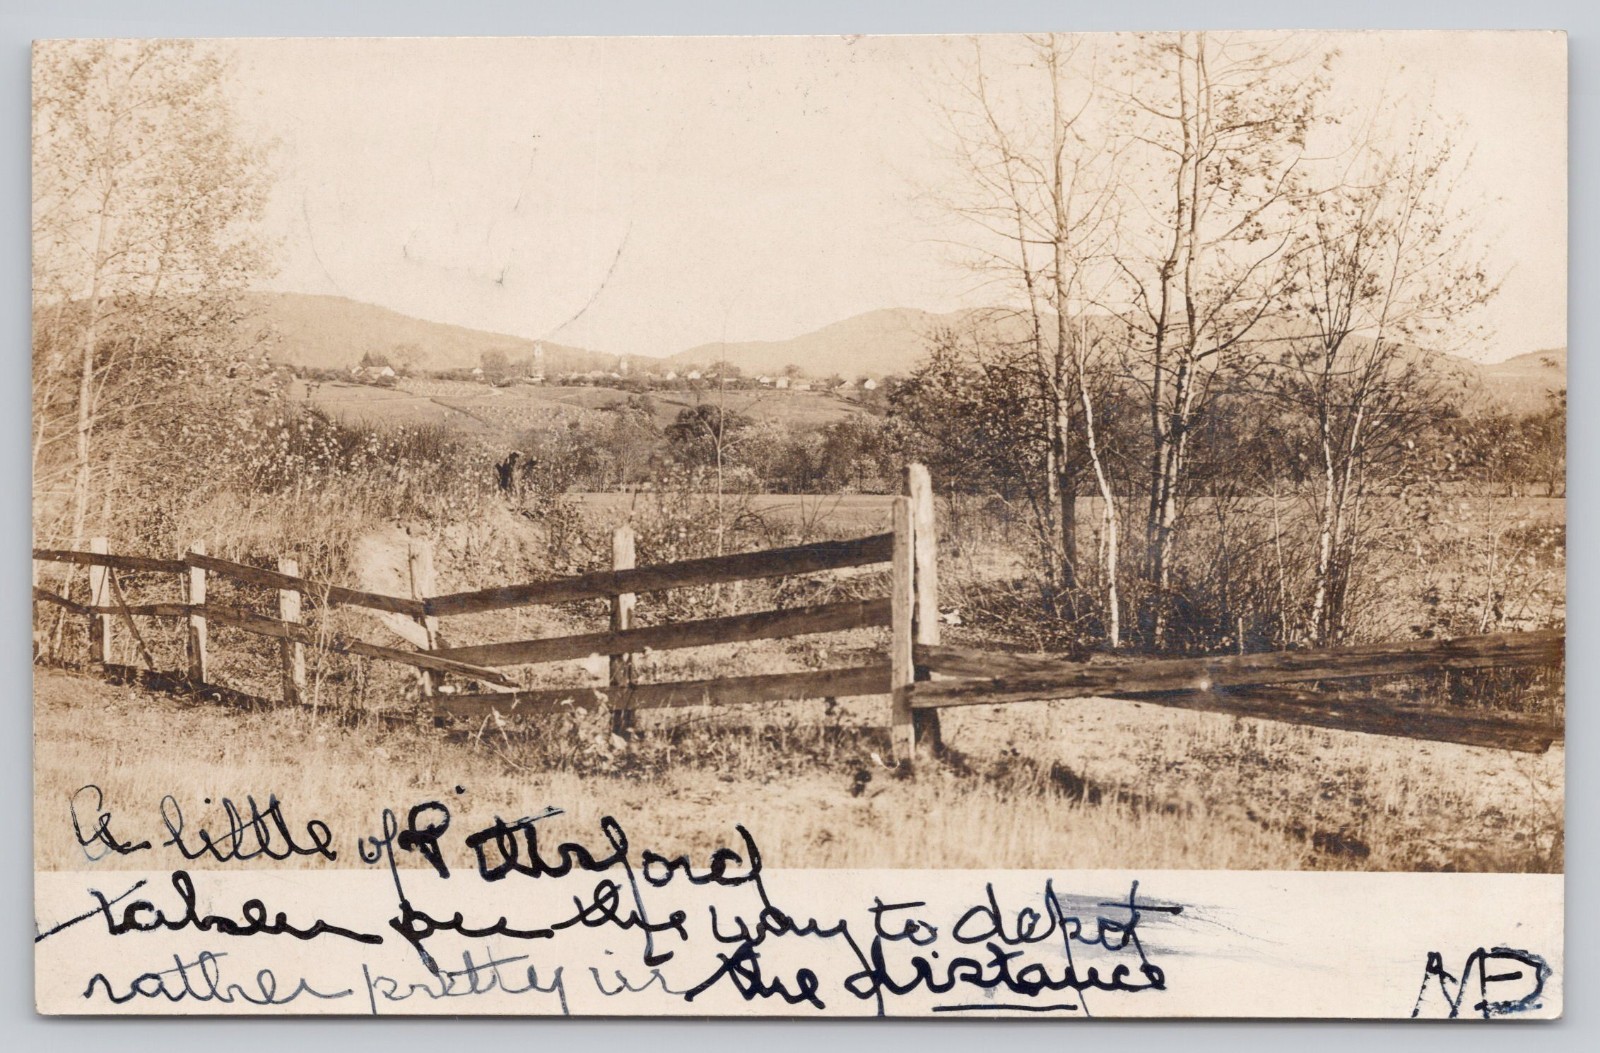 A little of Pittsford
taken on the way to depot
rather pretty in the distance